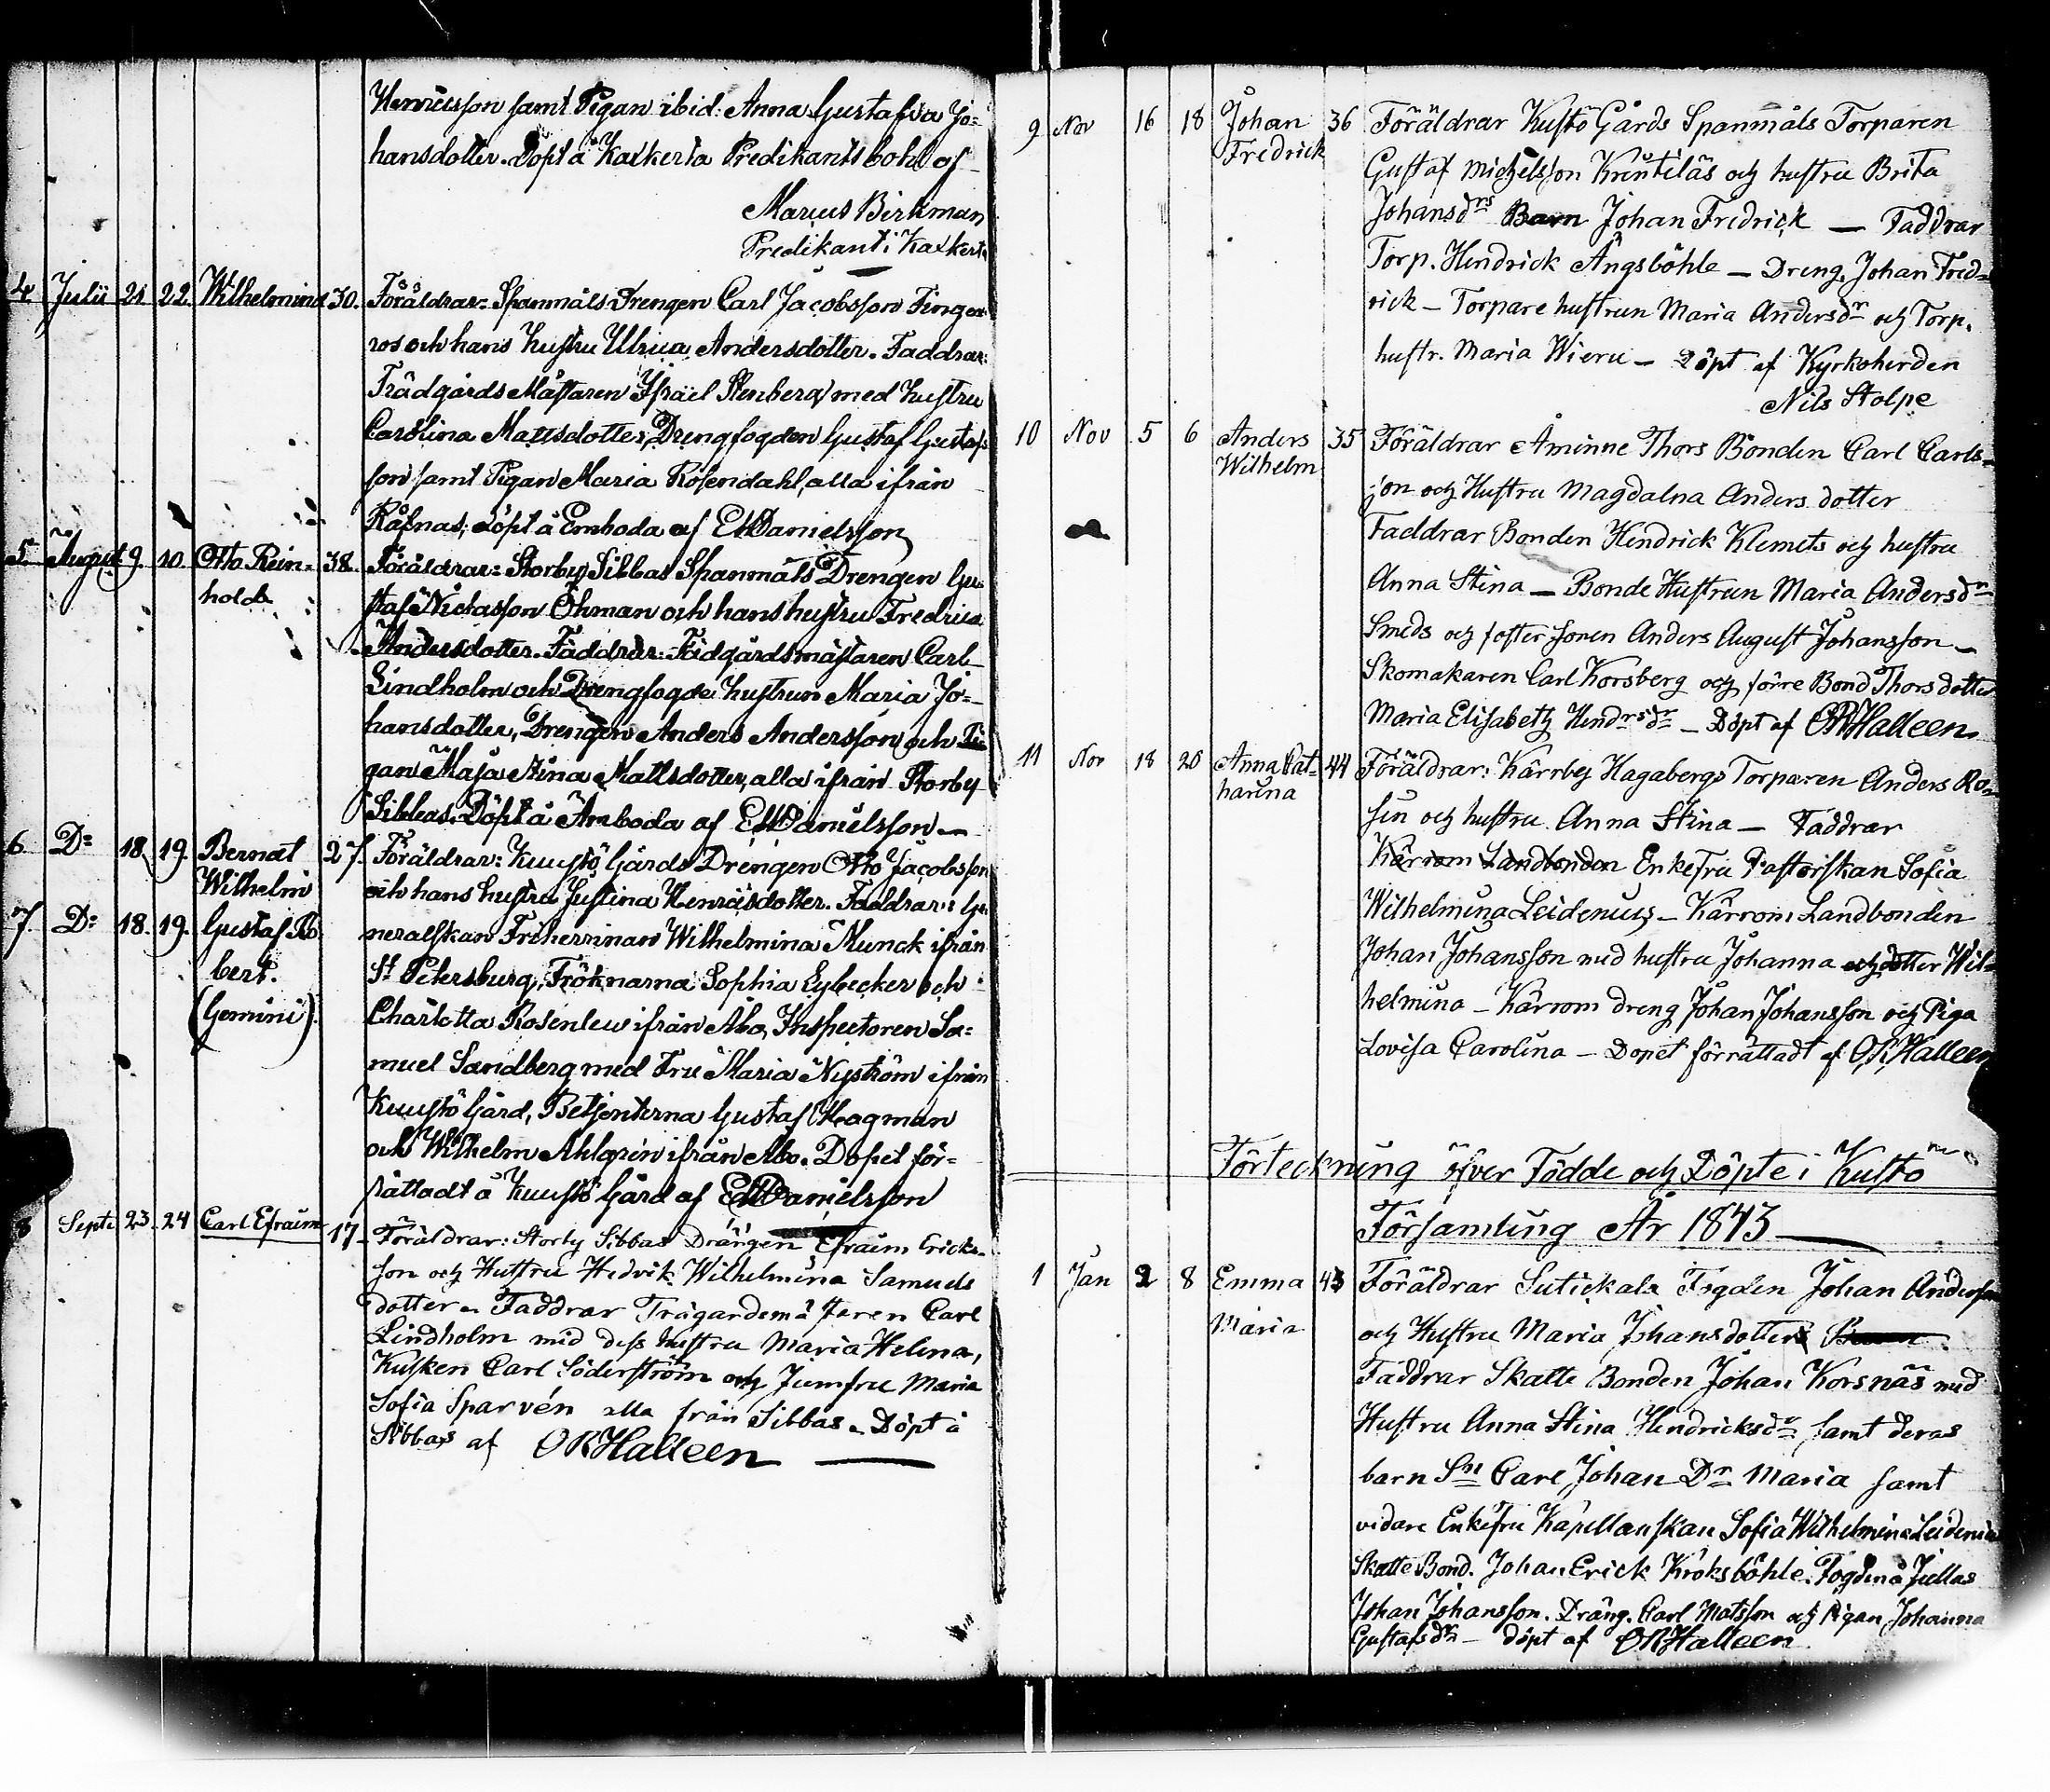 Henricsson samt Pigan ibid: Anna Gustafva Jo-
hansdotter. Döpt å Kaxkerta Predikants bohl af
Marcus Birkman
Predikant i Kaxkerta
4 Julii 21 22. Wilhelmina 30. Föräldrar: Spanmåls Drengen Carl Jacobsson Finger-
ros och hans Hustru Ulrica Andersdotter. Faddrar:
Trädgårds Mästaren Israël Stenberg med hustru
Carolina Mattsdotter, Drengfogden Gustaf Gustafs-
son samt Pigan Maria Rosendahl, alla ifrån
Råfnas; döpt å Emboda af EMDanielsson
5. August 9. 10. Otto Rein- 38. Föräldrar: Storby Sibbas Spanmåls Drengen Gu-
hold staf Niclasson Öhman och hans hustru Fredrica
Andersdotter. Faddrar: Trädgårdsmästaren Carl
Lindholm och Drengfogde hustrun Maria Jo-
hansdotter, Drengen Anders Andersson och Pi-
gan Maja Stina Mattsdotter, alla ifrån Storby
Sibbas. Döpt å Ämboda af EMDanielsson
6 Do 18. 19. Bernat 27. Föräldrar: Kuustö Gårds Drengen Otto Jacobsson
Wilhelm och hans hustru Justina Henricsdotter. Faddrar: Ge-
7. Do 18. 19. Gustaf Ro- neralskan Friherrinan Wilhelmina Munck ifrån
bert. St Petersburg, Fröknarna Sophia Eybecker och
(Gemini). Charlotta Rosenlew ifrån Åbo, Inspectoren Sa-
muel Sandberg med Fru Maria Nyström ifrån
Kuustö Gård, Betjenterna Gustaf Hagman
och Wilhelm Ahlgrén ifrån Åbo. Dopet för-
rättadt å Kuustö Gård af EMDanielsson
8 Septe 23. 24 Carl Efraim 17 Föräldrar: Storby Sibbas Drängen Efraim Ericks-
son och Hustru Hedvik Wilhelmina Samuels
dotter. Faddrar Trägårdemästaren Carl
Lindholm med dess hustru Maria Helena,
Kusken Carl Söderström och Jumfru Maria
Sofia Sparvén alla från Sibbas. Döpt å
Sibbas af ORHalleen
9 Nov 16 18 Johan 36 Föräldrar Kustö Gårds Spanmåls Torparen
Fredrick Gustaf Michelsson Krentiläs och hustru Brita
Johansdrs Barn Johan Fredrick — Faddrar
Torp. Hendrick Ängsböhle — Dreng. Johan Fred-
rick — Torpare hustrun Maria Andersdr och Torp.
hustr. Maria Wieru — Döpt af Kyrkoherden
Nils Stolpe
10 Nov 5 6 Anders 35 Föräldrar Åminne Thors Bonden Carl Carls-
Wilhelm son och Hustru Magdalna Anders dotter
Faddrar Bonden Hendrick Klemets och hustru
Anna Stina — Bonde Hustrun Maria Andersdr
Smeds och foster sonen Anders August Johansson —
Skomakaren Carl Korsberg och förre Bond Thors dotter
Maria Elisabeth Hendrsdr — Döpt af ORHalleen
11 Nov 18 20 Anna Cat- 44 Föräldrar: Kärrby Hagabergs Torparen Anders Ro-
harina sin och hustru Anna Stina — Faddrar
Kärrom Landbonden Enkefru Pastorskan Sofia
Wilhelmina Leidenius — Kärrom Landbonden
Johan Johansson med hustru Johanna och dotter Wil-
helmina — Kärrom dreng Johan Johansson och Piga
Lovisa Carolina — Dopet förrättadt af ORHalleen
Förteckning öfver Födde och Döpte i Kusto
Församling År 1843
1 Jan 2 8 Emma 43 Föräldrar Sutickala Fogden Johan Andersson
Maria och Hustru Maria Johansdotter
Faddrar Skatte Bonden Johan Korsnäs med
Hustru Anna Stina Hendricksdr samt deras
barn Sn Carl Johan Dr Maria samt
vidare Enkefru Kapellanskan Sofia Wilhelmina Leidenia
Skatte Bond. Johan Erick Kroksböhle. Fogden å Jullas
Johan Johansson. Dräng. Carl Matsson och Pigan Johanna
Gustafsdr — döpt af ORHalleen